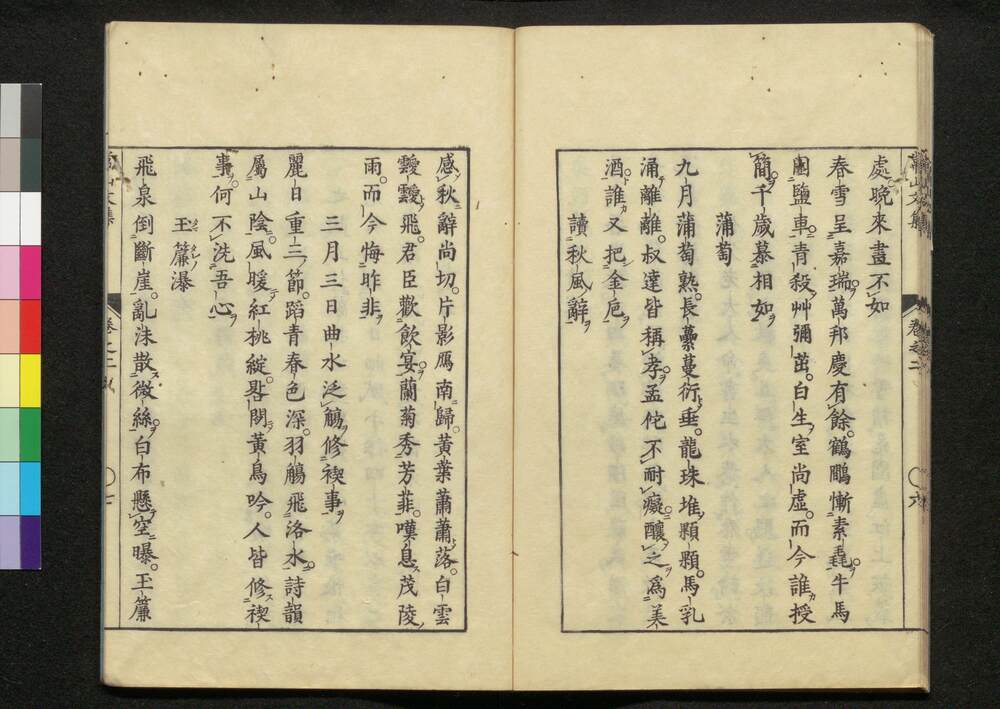 處晚來盡不如
春雪呈嘉瑞萬邦慶有餘鶴鷴慚素毳牛馬
困鹽車青殺艸彌茁白生室尚虛而今誰授
簡千歲慕相如
蒲萄
九月蒲萄熟長蘽蔓衍垂龍珠堆顆顆馬乳
涌離離叔達皆稱孝孟佗不耐癡釀之爲美
酒誰又把金巵
讀秋風辭
卷之二
六
感秋辭尚切片影鴈南歸黃葉蕭蕭落白雲
靉靉飛君臣歡飲宴蘭菊秀芳菲嘆息茂陵
雨而今悔昨非
三月三日曲水泛觴修禊事
麗日重三節蹈青春色深羽觴飛洛水詩韻
屬山陰風暖紅桃綻晷閑黃鳥吟人皆修禊
事何不洗吾心
玉簾瀑
飛泉倒斷崖亂沫散微絲白布懸空曝玉簾
山文集
卷之二
七